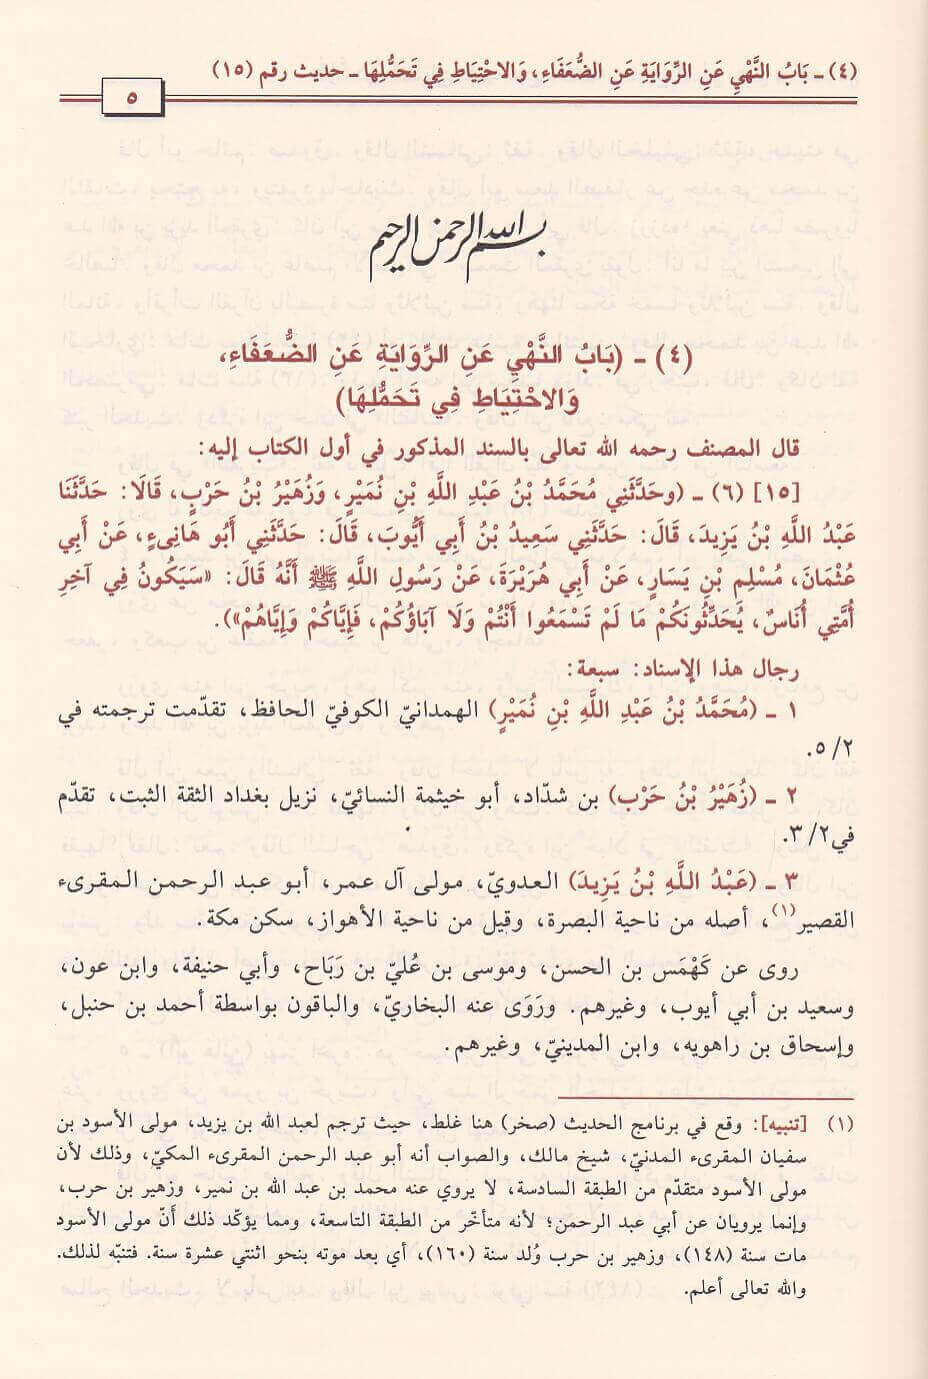 (٤) ـ بَابُ النَّهْيِ عَنِ الرِّوَايَةِ عَنِ الضُّعَفَاءِ، وَالاحْتِيَاطِ فِي تَحَمُّلِهَا ـ حديث رقم (١٥)
٥
بسم الله الرحمن الرحيم
(٤) ـ (بَابُ النَّهْيِ عَنِ الرِّوَايَةِ عَنِ الضُّعَفَاءِ،
وَالاحْتِيَاطِ فِي تَحَمُّلِهَا)
قال المصنف رحمه الله تعالى بالسند المذكور في أول الكتاب إليه:
[١٥] (٦) ـ (وحَدَّثَنِي مُحَمَّدُ بْنُ عَبْدِ اللَّهِ بْنِ نُمَيْرٍ، وَزُهَيْرُ بْنُ حَرْبٍ، قَالَا: حَدَّثَنَا
عَبْدُ اللَّهِ بْنُ يَزِيدَ، قَالَ: حَدَّثَنِي سَعِيدُ بْنُ أَبِي أَيُّوبَ، قَالَ: حَدَّثَنِي أَبُو هَانِىءٍ، عَنْ أَبِي
عُثْمَانَ، مُسْلِمِ بْنِ يَسَارٍ، عَنْ أَبِي هُرَيْرَةَ، عَنْ رَسُولِ اللَّهِ ﷺ أَنَّهُ قَالَ: «سَيَكُونُ فِي آخِرِ
أُمَّتِي أُنَاسٌ، يُحَدِّثُونَكُمْ مَا لَمْ تَسْمَعُوا أَنْتُمْ وَلَا آبَاؤُكُمْ، فَإِيَّاكُمْ وَإِيَّاهُمْ»).
رجال هذا الإسناد: سبعة:
١ ـ (مُحَمَّدُ بْنُ عَبْدِ اللَّهِ بْنِ نُمَيْرٍ) الهمدانيّ الكوفيّ الحافظ، تقدّمت ترجمته في
٥/٢.
٢ ـ (زُهَيْرُ بْنُ حَرْب) بن شدّاد، أبو خيثمة النسائيّ، نزيل بغداد الثقة الثبت، تقدّم
في٣/٢.
٣ ـ (عَبْدُ اللَّهِ بْنُ يَزِيدَ) العدويّ، مولى آل عمر، أبو عبد الرحمن المقرىء
القصير(١)، أصله من ناحية البصرة، وقيل من ناحية الأهواز، سكن مكة.
روى عن كَهْمَس بن الحسن، وموسى بن عُليّ بن رَبَاح، وأبي حنيفة، وابن عون،
وسعيد بن أبي أيوب، وغيرهم. ورَوَى عنه البخاريّ، والباقون بواسطة أحمد بن حنبل،
وإسحاق بن راهويه، وابن المدينيّ، وغيرهم.
(١) [تنبيه]: وقع في برنامج الحديث (صخر) هنا غلط، حيث ترجم لعبد الله بن يزيد، مولى الأسود بن
سفيان المقرىء المدنيّ، شيخ مالك، والصواب أنه أبو عبد الرحمن المقرىء المكيّ، وذلك لأن
مولى الأسود متقدّم من الطبقة السادسة، لا يروي عنه محمد بن عبد الله بن نمير، وزهير بن حرب،
وإنما يرويان عن أبي عبد الرحمن؛ لأنه متأخّر من الطبقة التاسعة، ومما يؤكّد ذلك أنّ مولى الأسود
مات سنة (١٤٨)، وزهير بن حرب وُلد سنة (١٦٠)، أي بعد موته بنحو اثنتي عشرة سنة. فتنبّه لذلك.
والله تعالى أعلم.